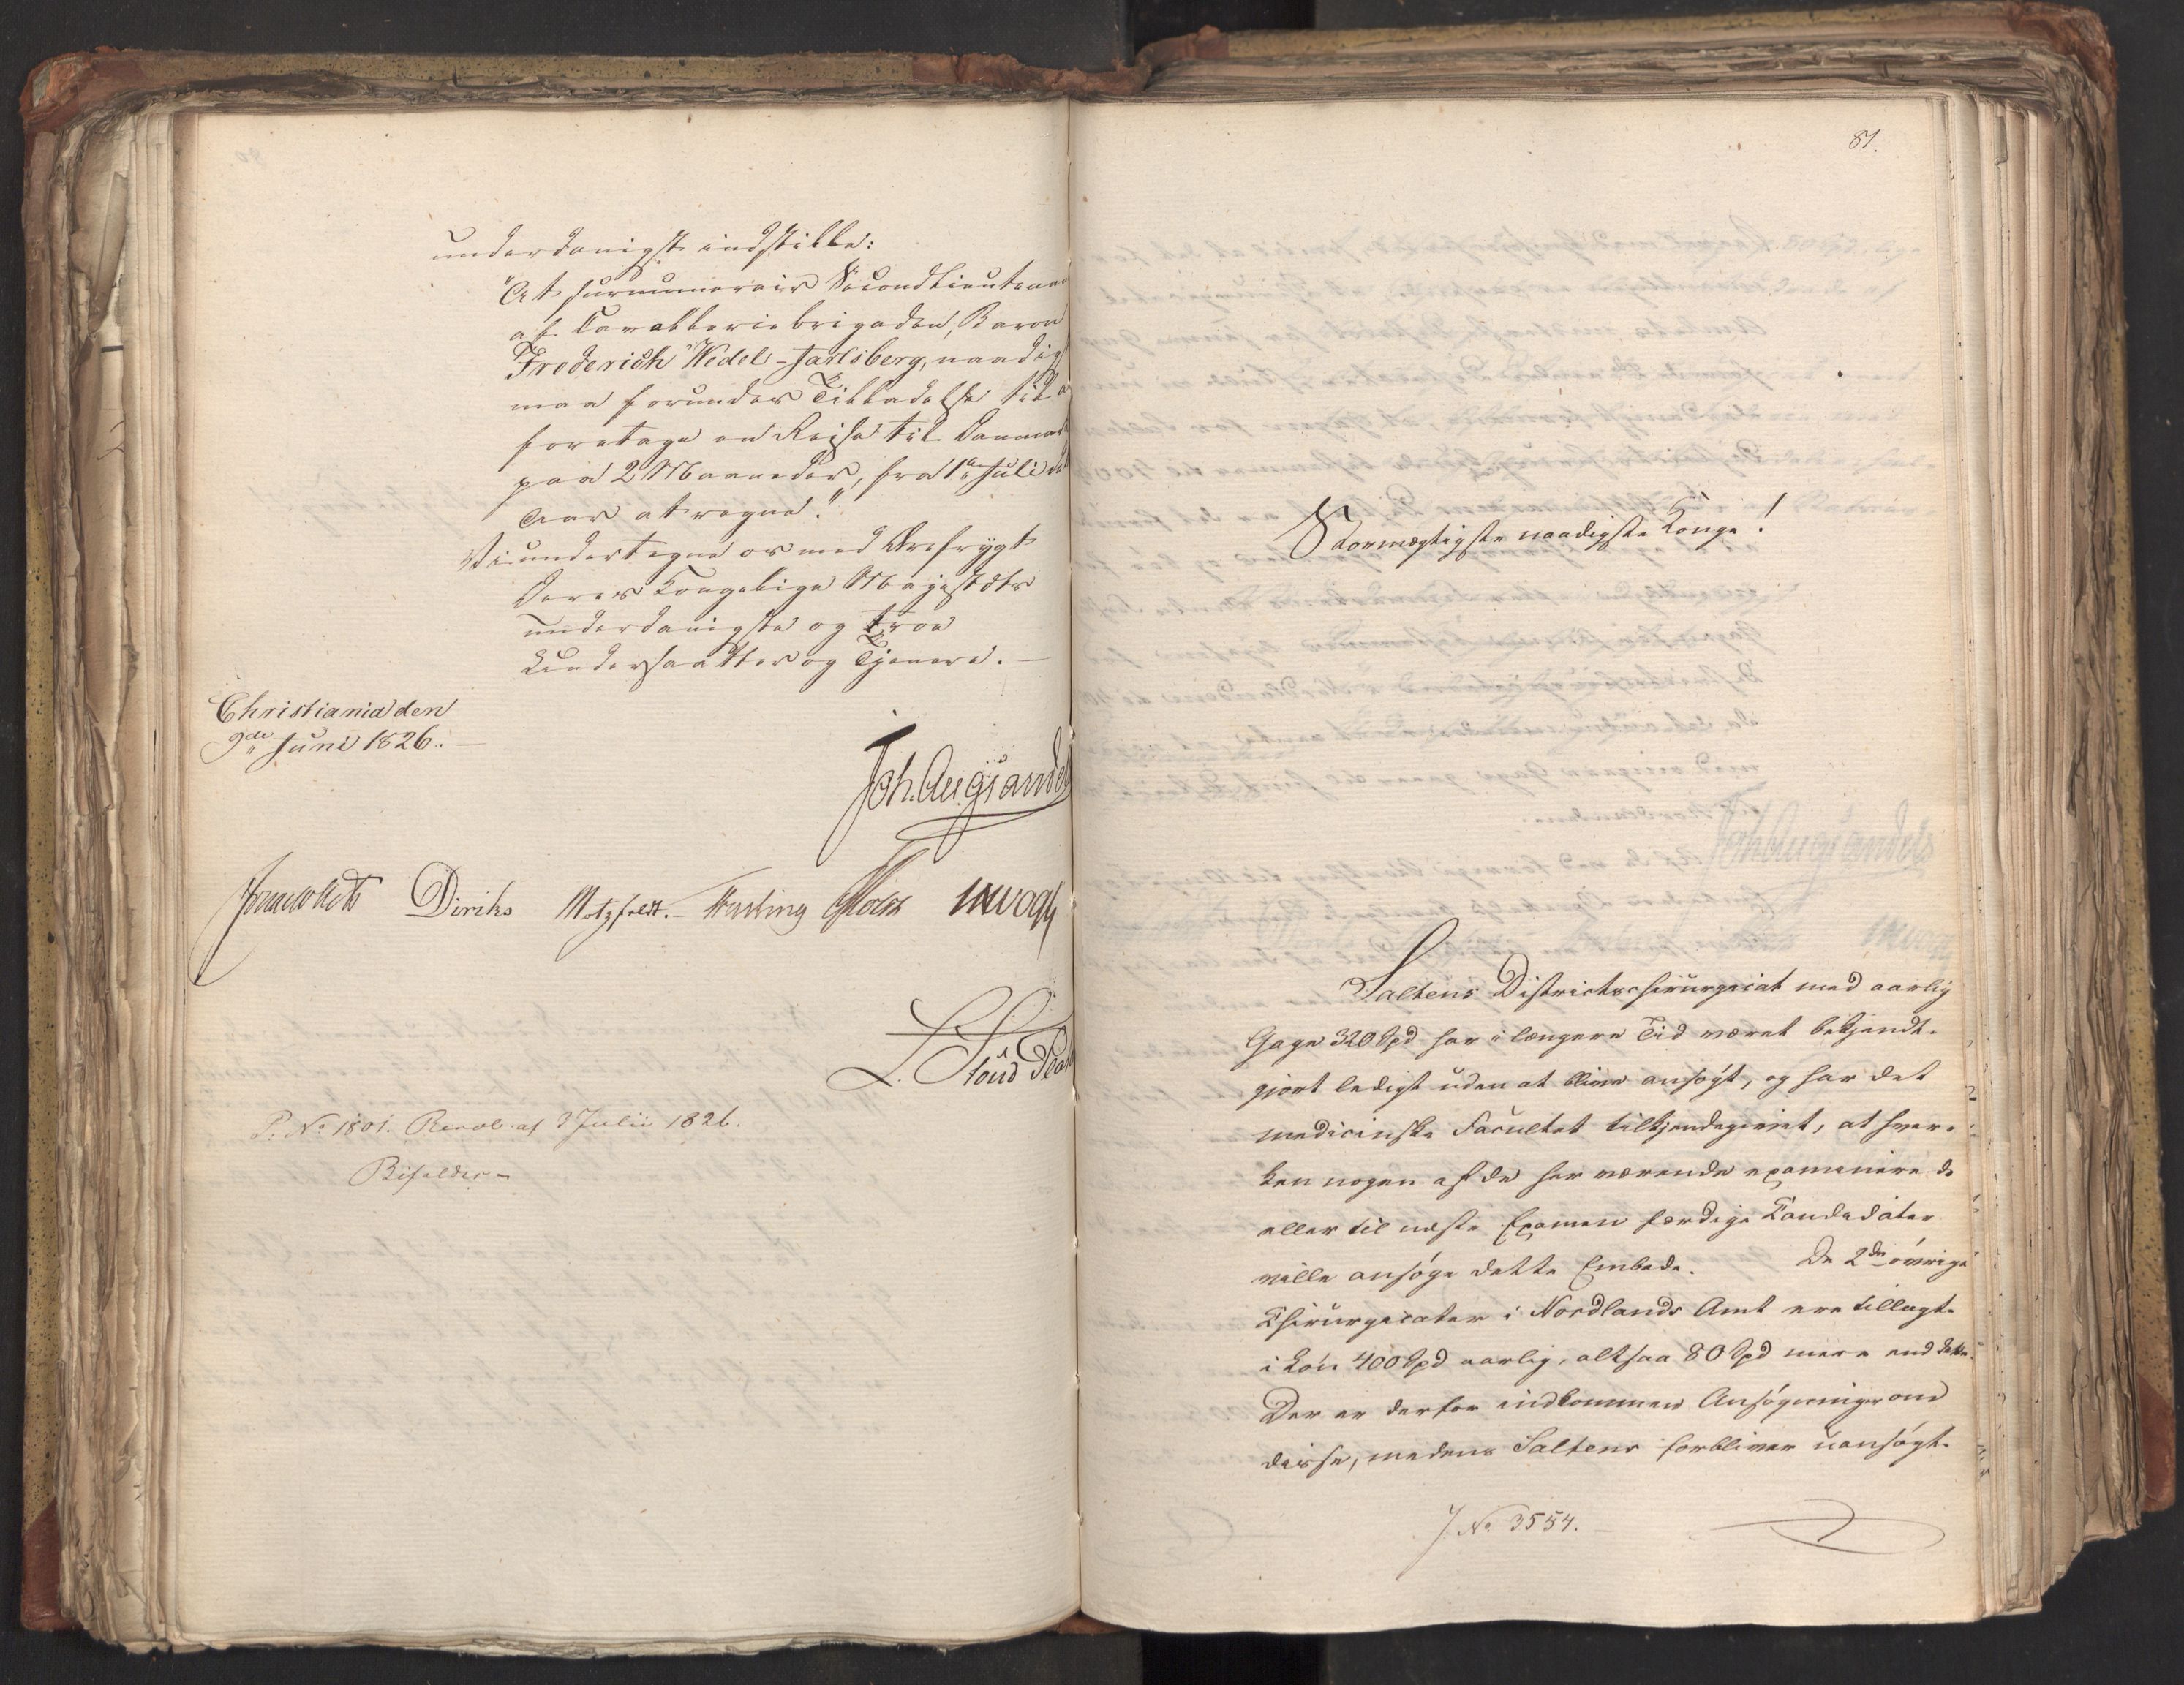 underdanigst indstille:
"At surnumerair Secondlieutenan
af Cavalleriebrigaden, Baron
Frederich Wedel-Jarlsberg, naadigst
maa forundes Tilladelse til a
foretage en Reise til Danmark
paa 2 Maaneder, fra 1ste Juli d
Aar at regne."
Vi undertegne os med Ærefrygt
Deres Kongelige Majestæts
underdanigste og troe
Undersaatter og Tjenere. —
Christiania den
9de Juni 1826. —
Joh. Aug. Sandels
Sommerhielm Diriks Motzfeldt. Fasting Holst JHVogt
L. Stoud Plat
P. No 1801. Resol. af 3 Julii 1826.
Bifaldes -
81.
Stormægtigste naadigste Konge!
Saltens Districtschirurgicat med aarlig
Gage 320 Spd har i længere Tid været bekjendt-
gjort ledigt uden at blive ansøgt, og har det
medicinske Facultet tilkjendegivet, at hver-
ken nogen af de her værende examinerede
eller til næste Examen færdige Candidater
ville ansøge dette Embede. De 2de øvrige
Chirurgicater i Nordlands Amt ere tillagt-
i Løn 400 Spd aarlig, altsaa 80 Spd mere end dette.
Der er derfor indkommen Ansøgninger om
disse, medens Saltens forbliver uansøgt.
J. No 3554. —